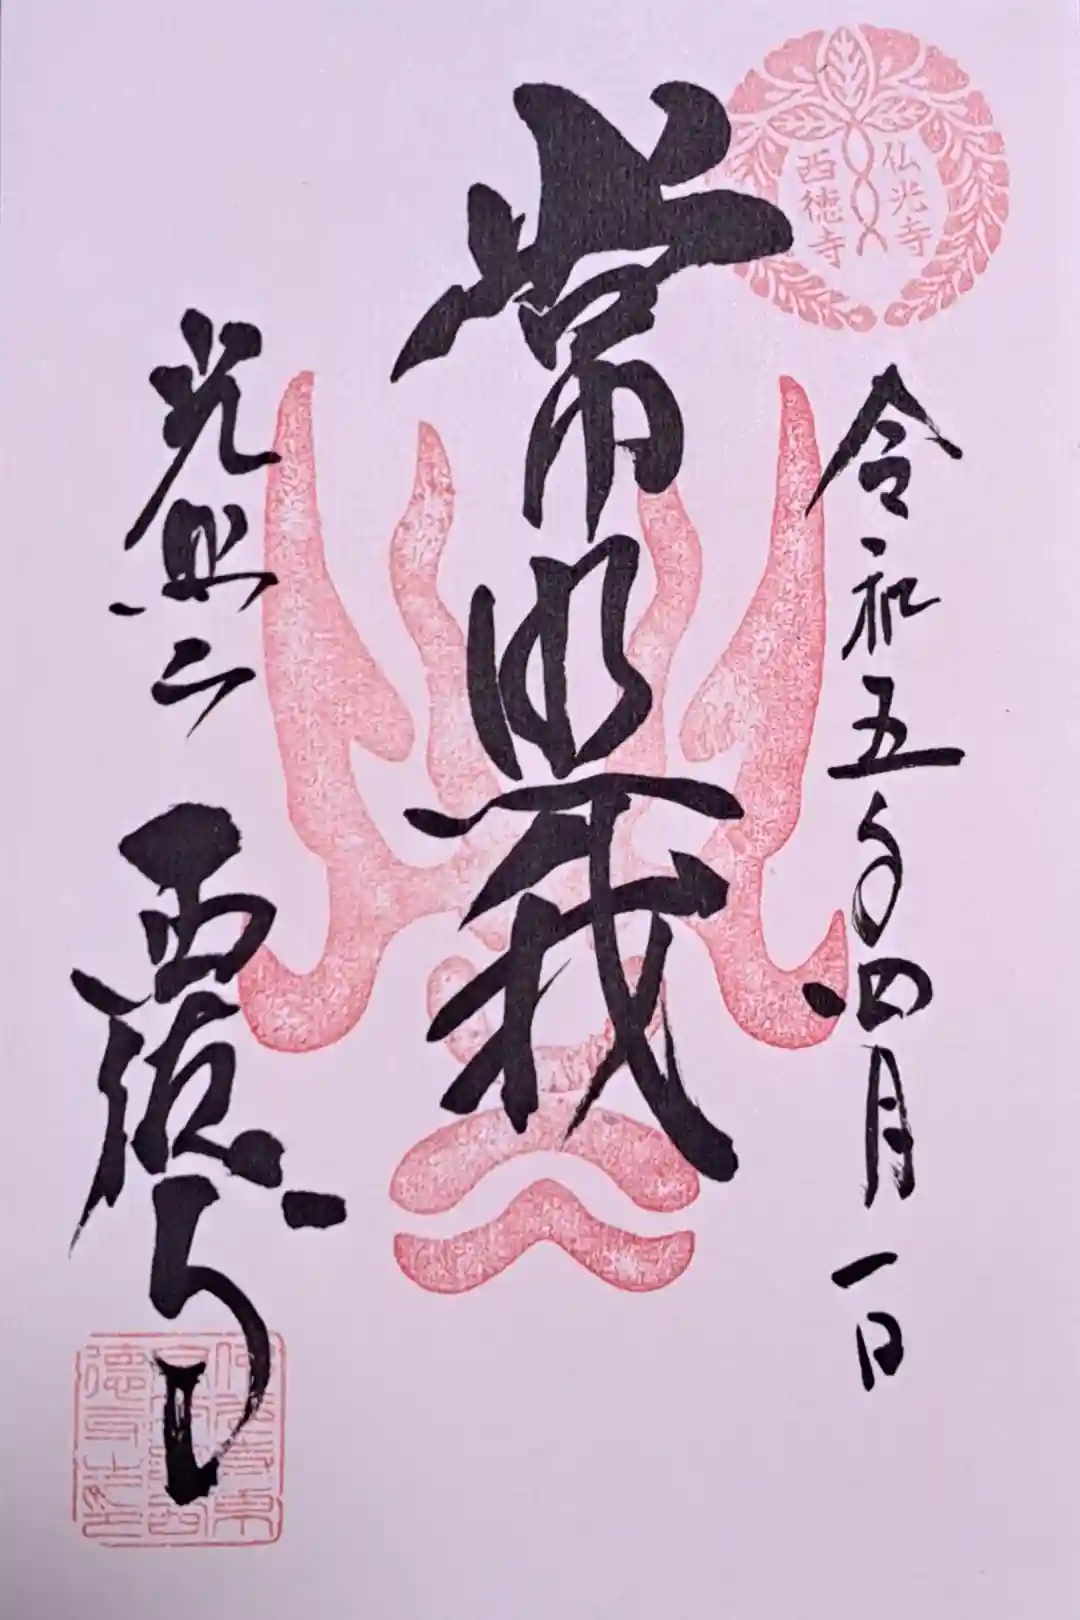 仏光寺
西徳寺
令和五年四月一日
常照我
光照山
西徳寺